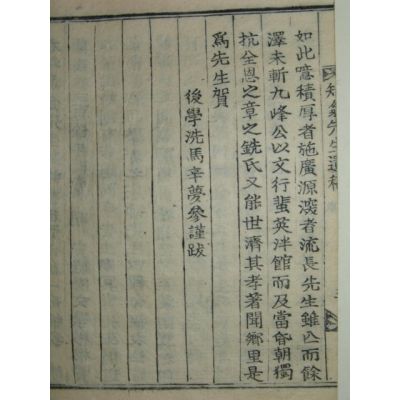 先生遺稿
如此噫積厚者施廣源深者流長先生雖亾而餘
澤未斬九峰公以文行蜚英泮館而及當昏朝獨
抗全恩之章之銑氏又能世濟其孝著聞鄉里是
爲先生賀
後學洗馬辛夢參謹跋